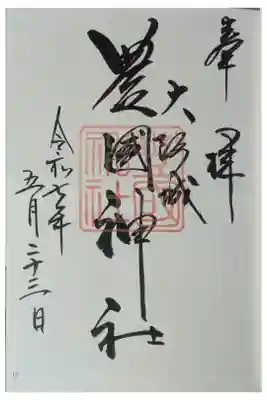 奉拝
大阪城
豊國神社
令和七年
五月二十三日